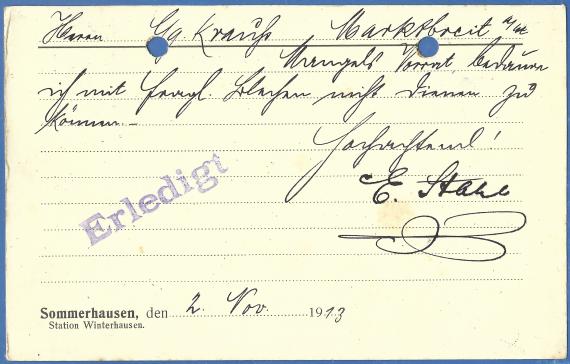 Herrn Gg Krauß Marktbreit a/M
Mangels Vorrat, bedaure
ich mit fragl. Blechen nicht dienen zu
können.–
Hochachtend!
E. Stahl
Erledigt
Sommerhausen, den 2. Nov. 1913
Station Winterhausen.